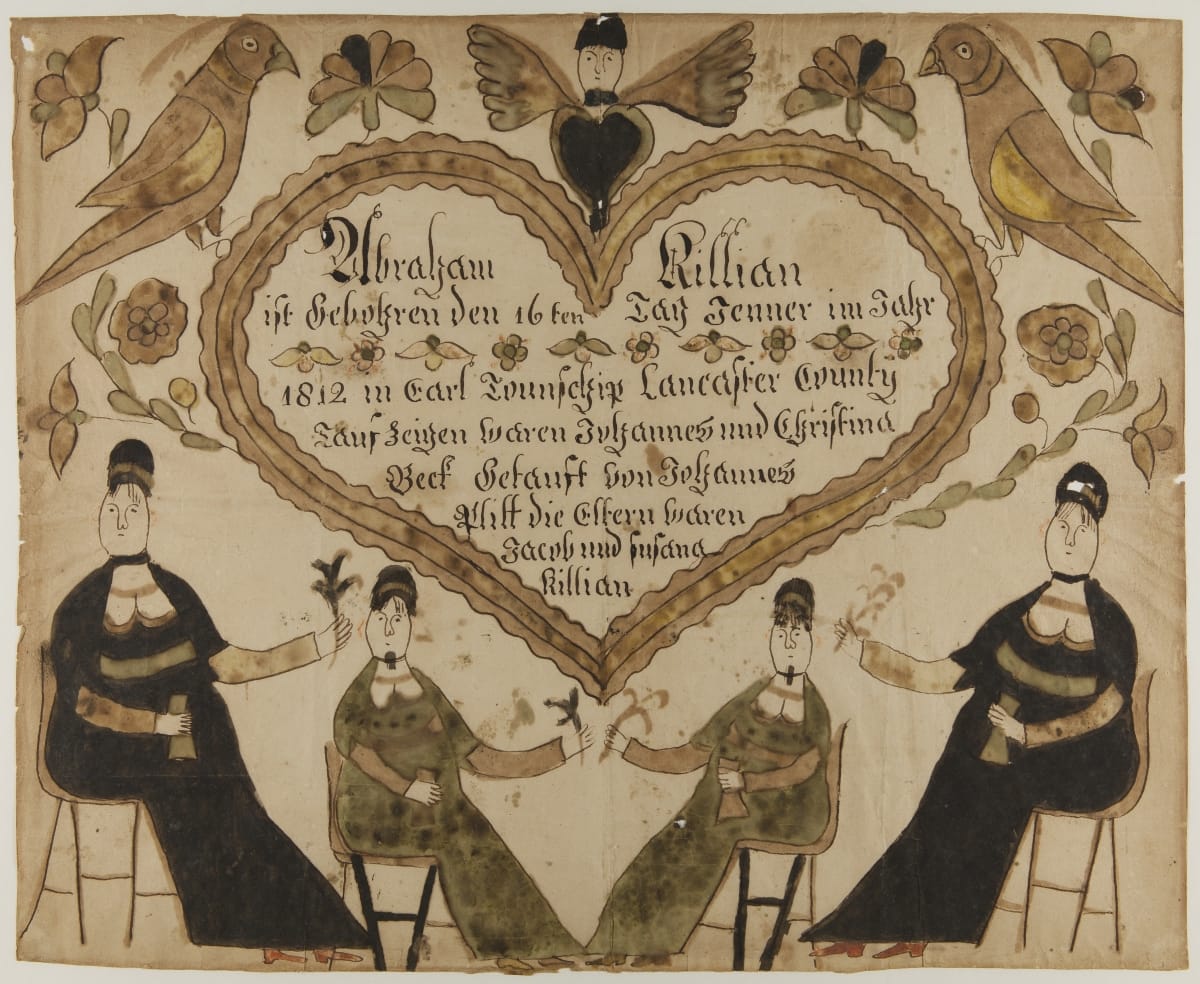 Abraham Killian
ist Gebohren den 16ten Tag Jenner im Jahr
1812 in Earl Tounschip Lancaster County
Tauf Zeigen waren Johannes und Christina
Beck Getauft von Johannes
Plitt die Eltern waren
Jacob und susana
Killian